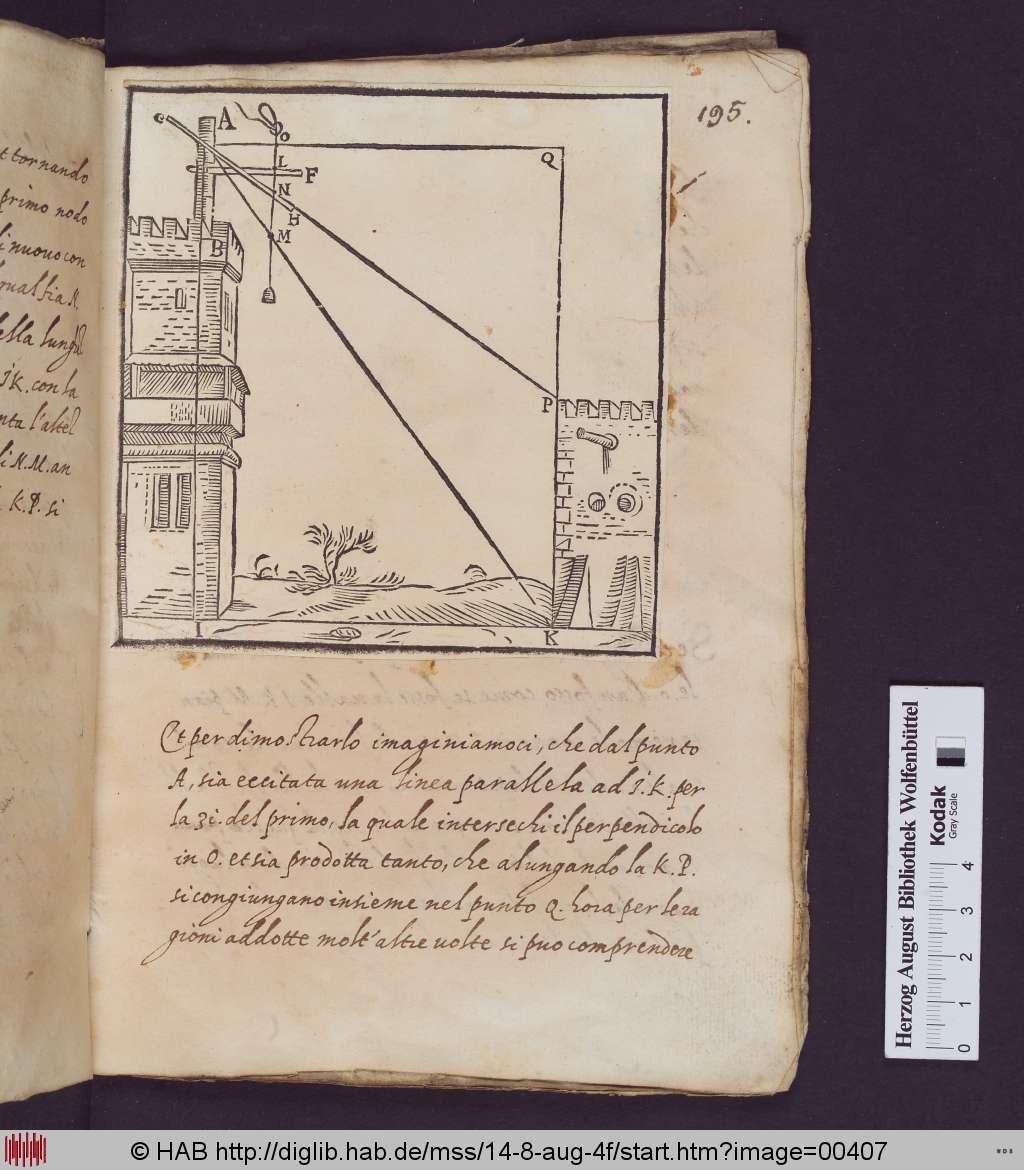 t tornando
primo nodo
i nuouo con
qual sia N.
ella lungh
I K. con la
nta l'altez
li N. M. an
K. P. si
195.
C
A
O
Q
L
F
N
H
B
M
P
I
K
Et per dimostrarlo imaginiamoci, che dal punto
A, sia eccitata una linea parallela ad I. K. per
la 31. del primo, la quale intersechi il perpendicolo
in O. et sia prodotta tanto, che alungando la K. P.
si congiungano insieme nel punto Q. hora per le ra
gioni addotte molt'altre uolte si puo comprendere
Herzog August Bibliothek Wolfenbüttel
Kodak
Gray Scale
0 1 2 3 4
© HAB http://diglib.hab.de/mss/14-8-aug-4f/start.htm?image=00407